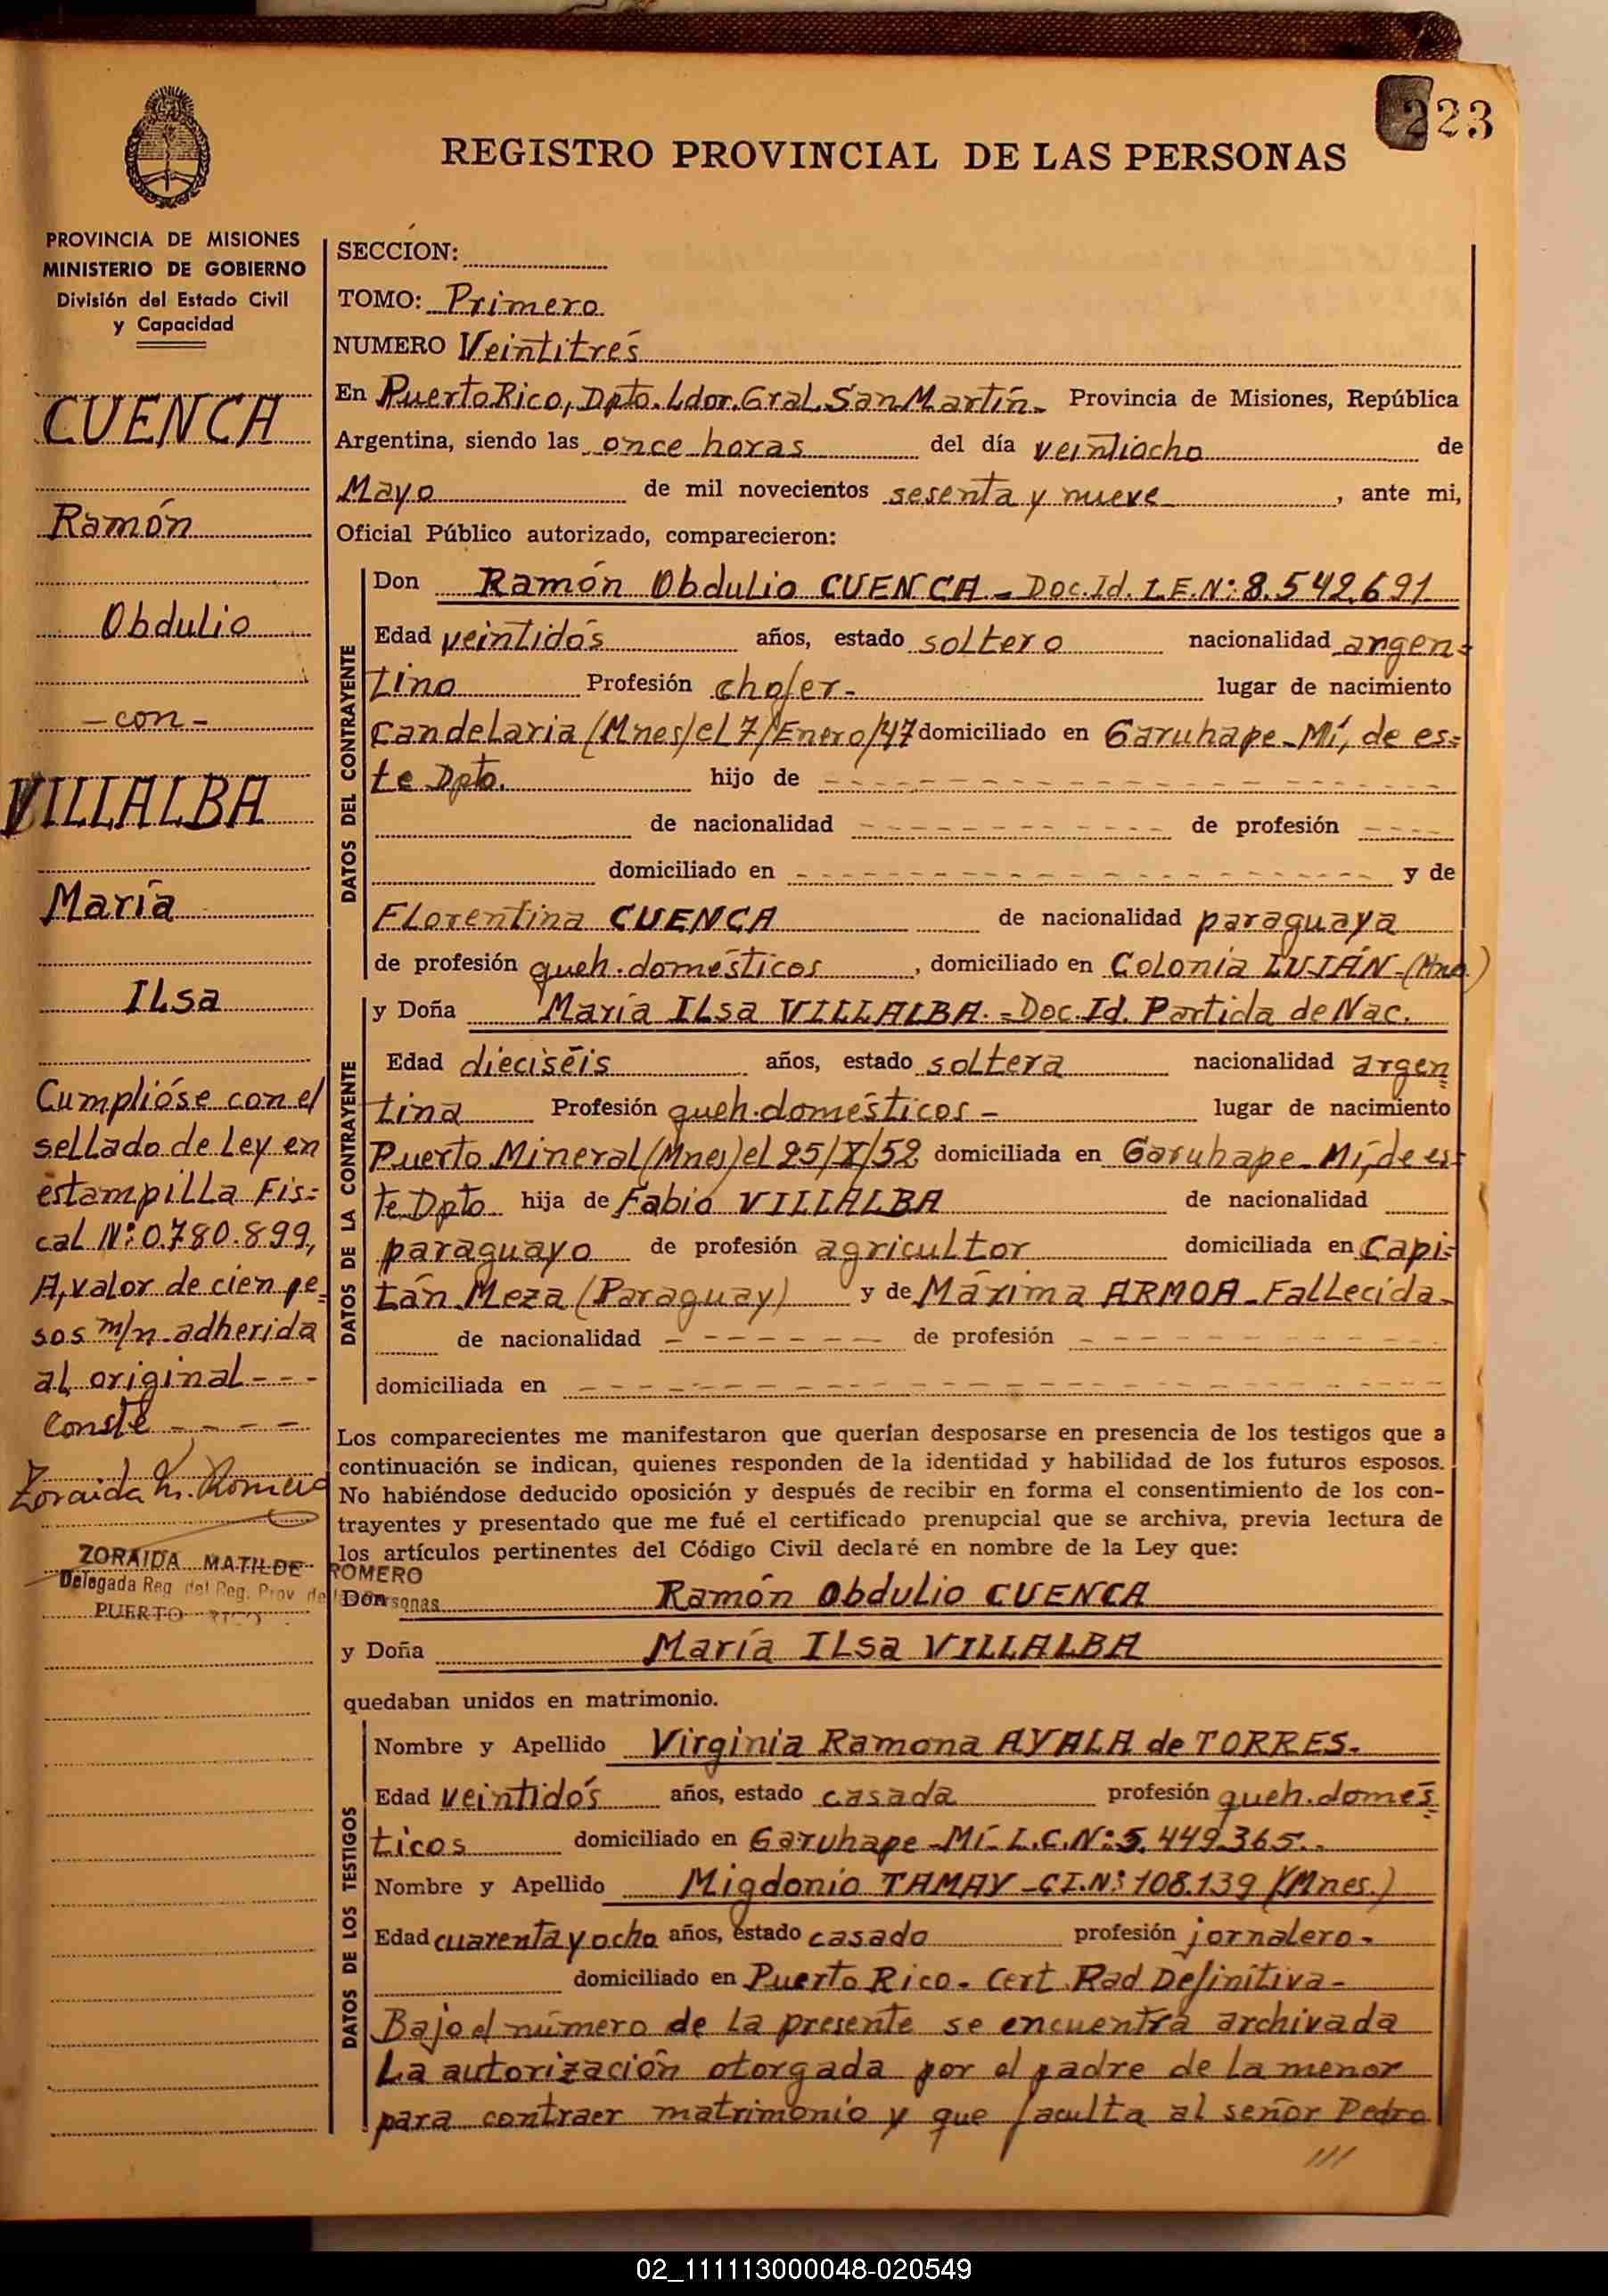 223
REGISTRO PROVINCIAL DE LAS PERSONAS
PROVINCIA DE MISIONES
MINISTERIO DE GOBIERNO
División del Estado Civil
y Capacidad
CUENCA
Ramón
Obdulio
-con-
VILLALBA
María
Ilsa
Cumplióse con el
sellado de Ley en
estampilla Fis=
cal Nº: 0.780.899,
A, valor de cien pe=
sos m/n. adherida
al original - - -
Conste - - - -
Zoraida M. Romero
ZORAIDA MATILDE ROMERO
Delegada Reg. del Reg. Prov. de las Personas
PUERTO RICO
SECCION:
TOMO: Primero
NUMERO Veintitrés
En Puerto Rico, Dpto. Ldor. Gral. San Martín- Provincia de Misiones, República
Argentina, siendo las once horas del día veintiocho de
Mayo de mil novecientos sesenta y nueve, ante mi,
Oficial Público autorizado, comparecieron:
DATOS DEL CONTRAYENTE
Don Ramón Obdulio CUENCA - Doc. Id. L.E. Nº: 8.542.691
Edad veintidós años, estado soltero nacionalidad argen=
tino Profesión chofer- lugar de nacimiento
Candelaria (Mnes) el 7/Enero/47 domiciliado en Garuhape-Mí, de es=
te Dpto. hijo de - - - - - - - - - - - - - - - -
de nacionalidad - - - - - - - - - - de profesión - - - -
domiciliado en - - - - - - - - - - - - - - - - y de
Florentina CUENCA de nacionalidad paraguaya
de profesión queh. domésticos, domiciliado en Colonia LUJÁN-(Mnes)
DATOS DE LA CONTRAYENTE
y Doña María Ilsa VILLALBA.= Doc. Id. Partida de Nac.
Edad dieciséis años, estado soltera nacionalidad argen
tina Profesión queh. domésticos - lugar de nacimiento
Puerto Mineral (Mnes) el 25/X/52 domiciliada en Garuhape-Mí, de es=
te Dpto hija de Fabio VILLALBA de nacionalidad
paraguayo de profesión agricultor domiciliada en Capi=
tán Meza (Paraguay) y de Máxima ARMOA-Fallecida-
de nacionalidad - - - - - - - de profesión - - - - - - - - - -
domiciliada en - - - - - - - - - - - - - - - - - - - -
Los comparecientes me manifestaron que querían desposarse en presencia de los testigos que a
continuación se indican, quienes responden de la identidad y habilidad de los futuros esposos.
No habiéndose deducido oposición y después de recibir en forma el consentimiento de los con-
trayentes y presentado que me fué el certificado prenupcial que se archiva, previa lectura de
los artículos pertinentes del Código Civil declaré en nombre de la Ley que:
Don Ramón Obdulio CUENCA
y Doña María Ilsa VILLALBA
quedaban unidos en matrimonio.
DATOS DE LOS TESTIGOS
Nombre y Apellido Virginia Ramona AYALA de TORRES.
Edad veintidós años, estado casada profesión queh. domés
ticos domiciliado en Garuhape-Mí- L.C. Nº: 5.449.365.
Nombre y Apellido Migdonio TAMAY -C.I. Nº: 108.139 (Mnes.)
Edad cuarenta y ocho años, estado casado profesión jornalero-
domiciliado en Puerto Rico- Cert. Rad Definitiva-
Bajo el número de la presente se encuentra archivada
la autorización otorgada por el padre de la menor
para contraer matrimonio y que faculta al señor Pedro
///
02_111113000048-020549